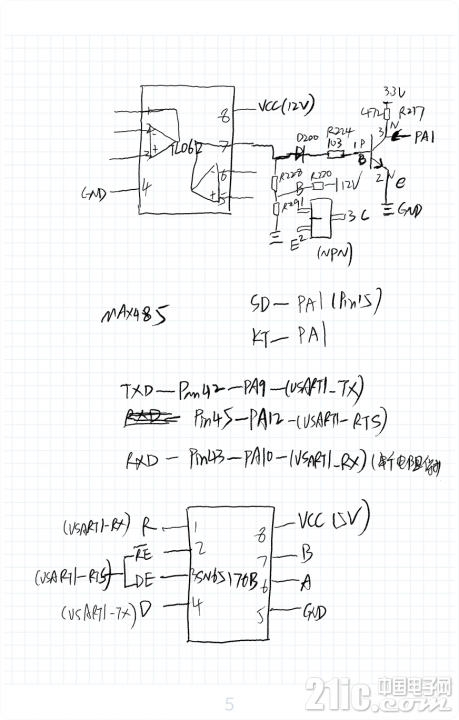 3.3V
472 R217
8 VCC(12V)
D200 R224
103
1 P 3 N PA1
B
7
TL062
6
2 N e
4 GND
5
R228 B R220 12V
R291
GND
3 C
E 2
(NPN)
MAX485
SD— PA1 (Pin15)
KT— PA1
TXD—Pin42—PA9—(USART1_TX)
RXD Pin45—PA12—(USART1-RTS)
RXD — Pin43—PA10—(USART1_RX)
(USART1-RX) R 1 8 VCC (5V)
RE 2 7 B
(USART1-RTS) DE 3 SN65176B 6 A
(USART1-TX) D 4 5 GND
5
21ic中国电子网
.com